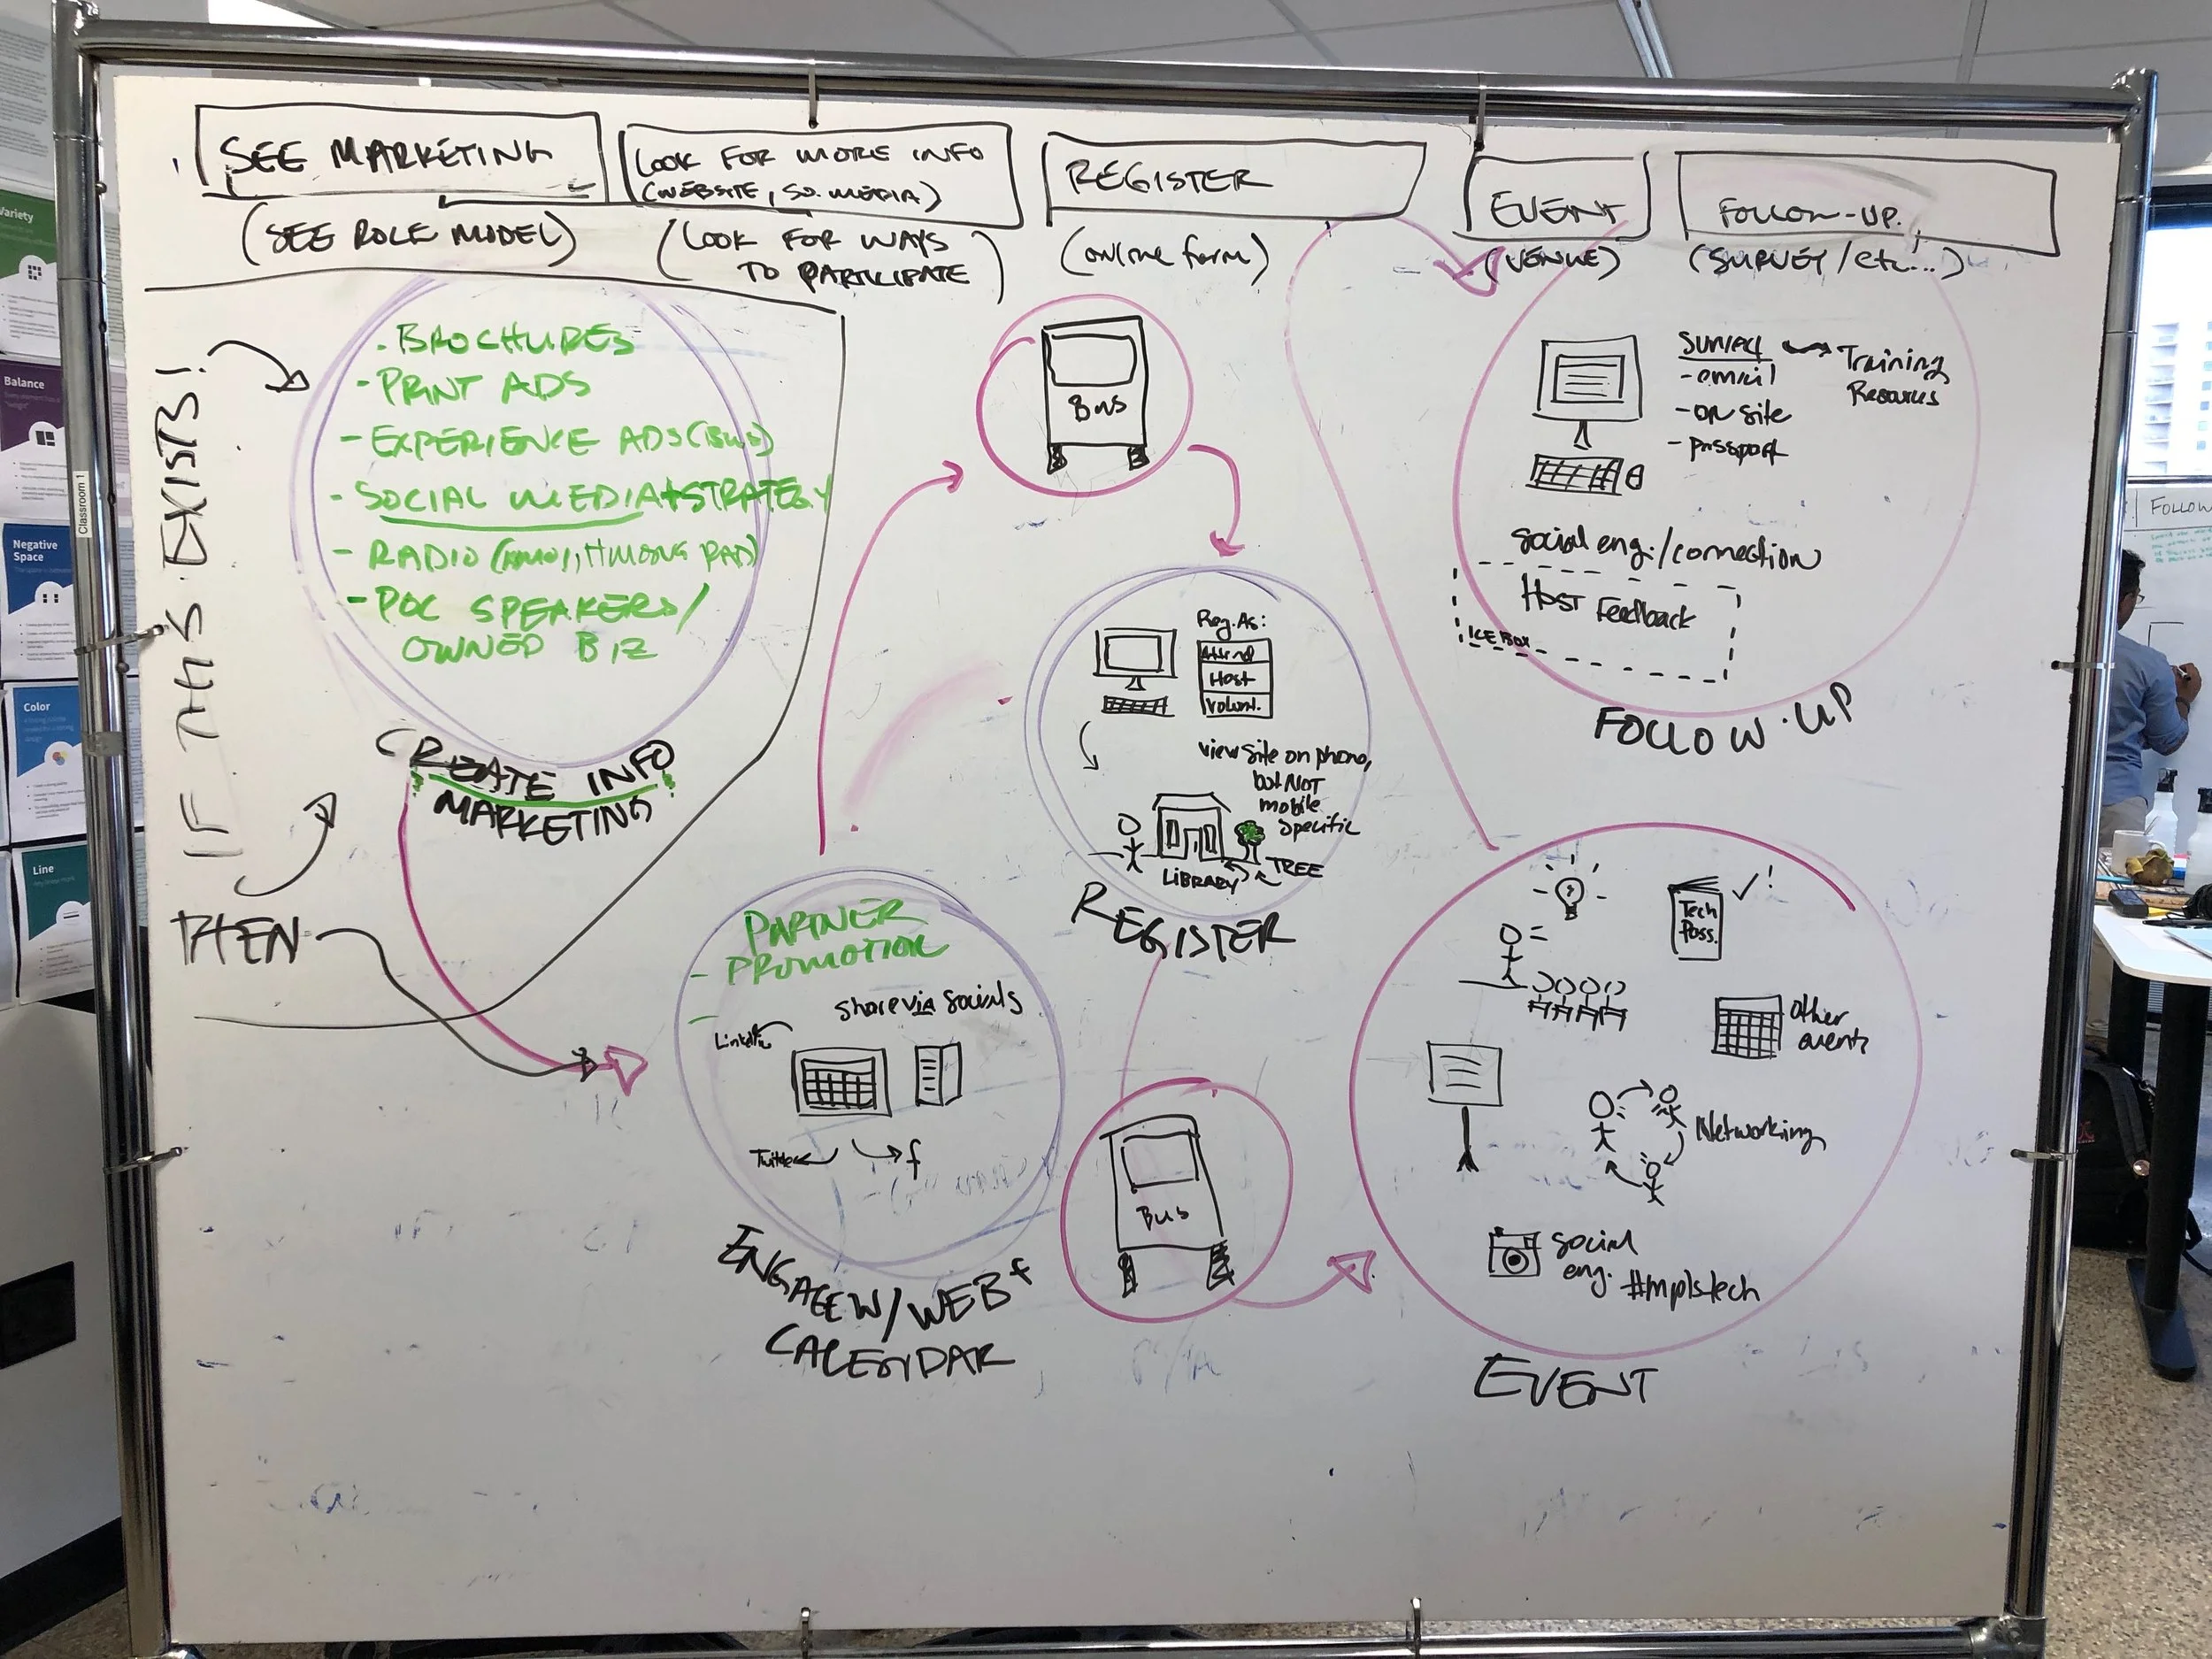 SEE MARKETING
(SEE ROLE MODEL)
LOOK FOR MORE INFO
(WEBSITE, SO. MEDIA)
(LOOK FOR WAYS
TO PARTICIPATE)
REGISTER
(online form)
EVENT
(VENUE)
FOLLOW-UP.
(SURVEY/etc...)
IF THIS EXISTS!
THEN
- BROCHURES
- PRINT ADS
- EXPERIENCE ADS (BUS)
- SOCIAL MEDIA + STRATEGY
- RADIO (KMOJ, HMONG RAD)
- POC SPEAKERS/
OWNED BIZ
CREATE INFO
MARKETING
PARTNER
- PROMOTION
share via socials
LinkedIn
Twitter
f
ENGAGE W/ WEB +
CALENDAR
Bus
Reg. As:
Attend
Host
Volunt.
view site on phone,
but NOT
mobile
specific
LIBRARY
TREE
REGISTER
Bus
Tech
Pass.
!
Other
events
Networking
Social
eng.
#mplstech
EVENT
Survey
Training
Resources
- email
- on site
- passport
Social eng./connection
Host Feedback
ICE BOX
FOLLOW-UP
Classroom 1
Variety
Balance
Negative
Space
Color
Line
FOLLOW